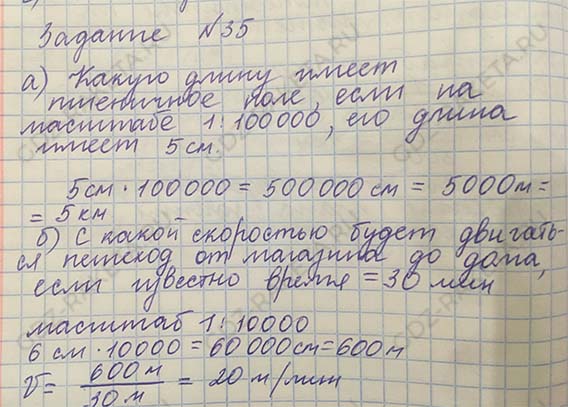 Задание №35
а) Какую длину имеет
пшеничное поле, если на
масштабе 1:100000, его длина
имеет 5 см.
5 см · 100000 = 500000 см = 5000 м =
= 5 км
б) С какой скоростью будет двигать-
ся пешеход от магазина до дома,
если известно время = 30 мин
масштаб 1:10000
6 см · 10000 = 60000 см = 600 м
V = 600 м / 30 м = 20 м/мин